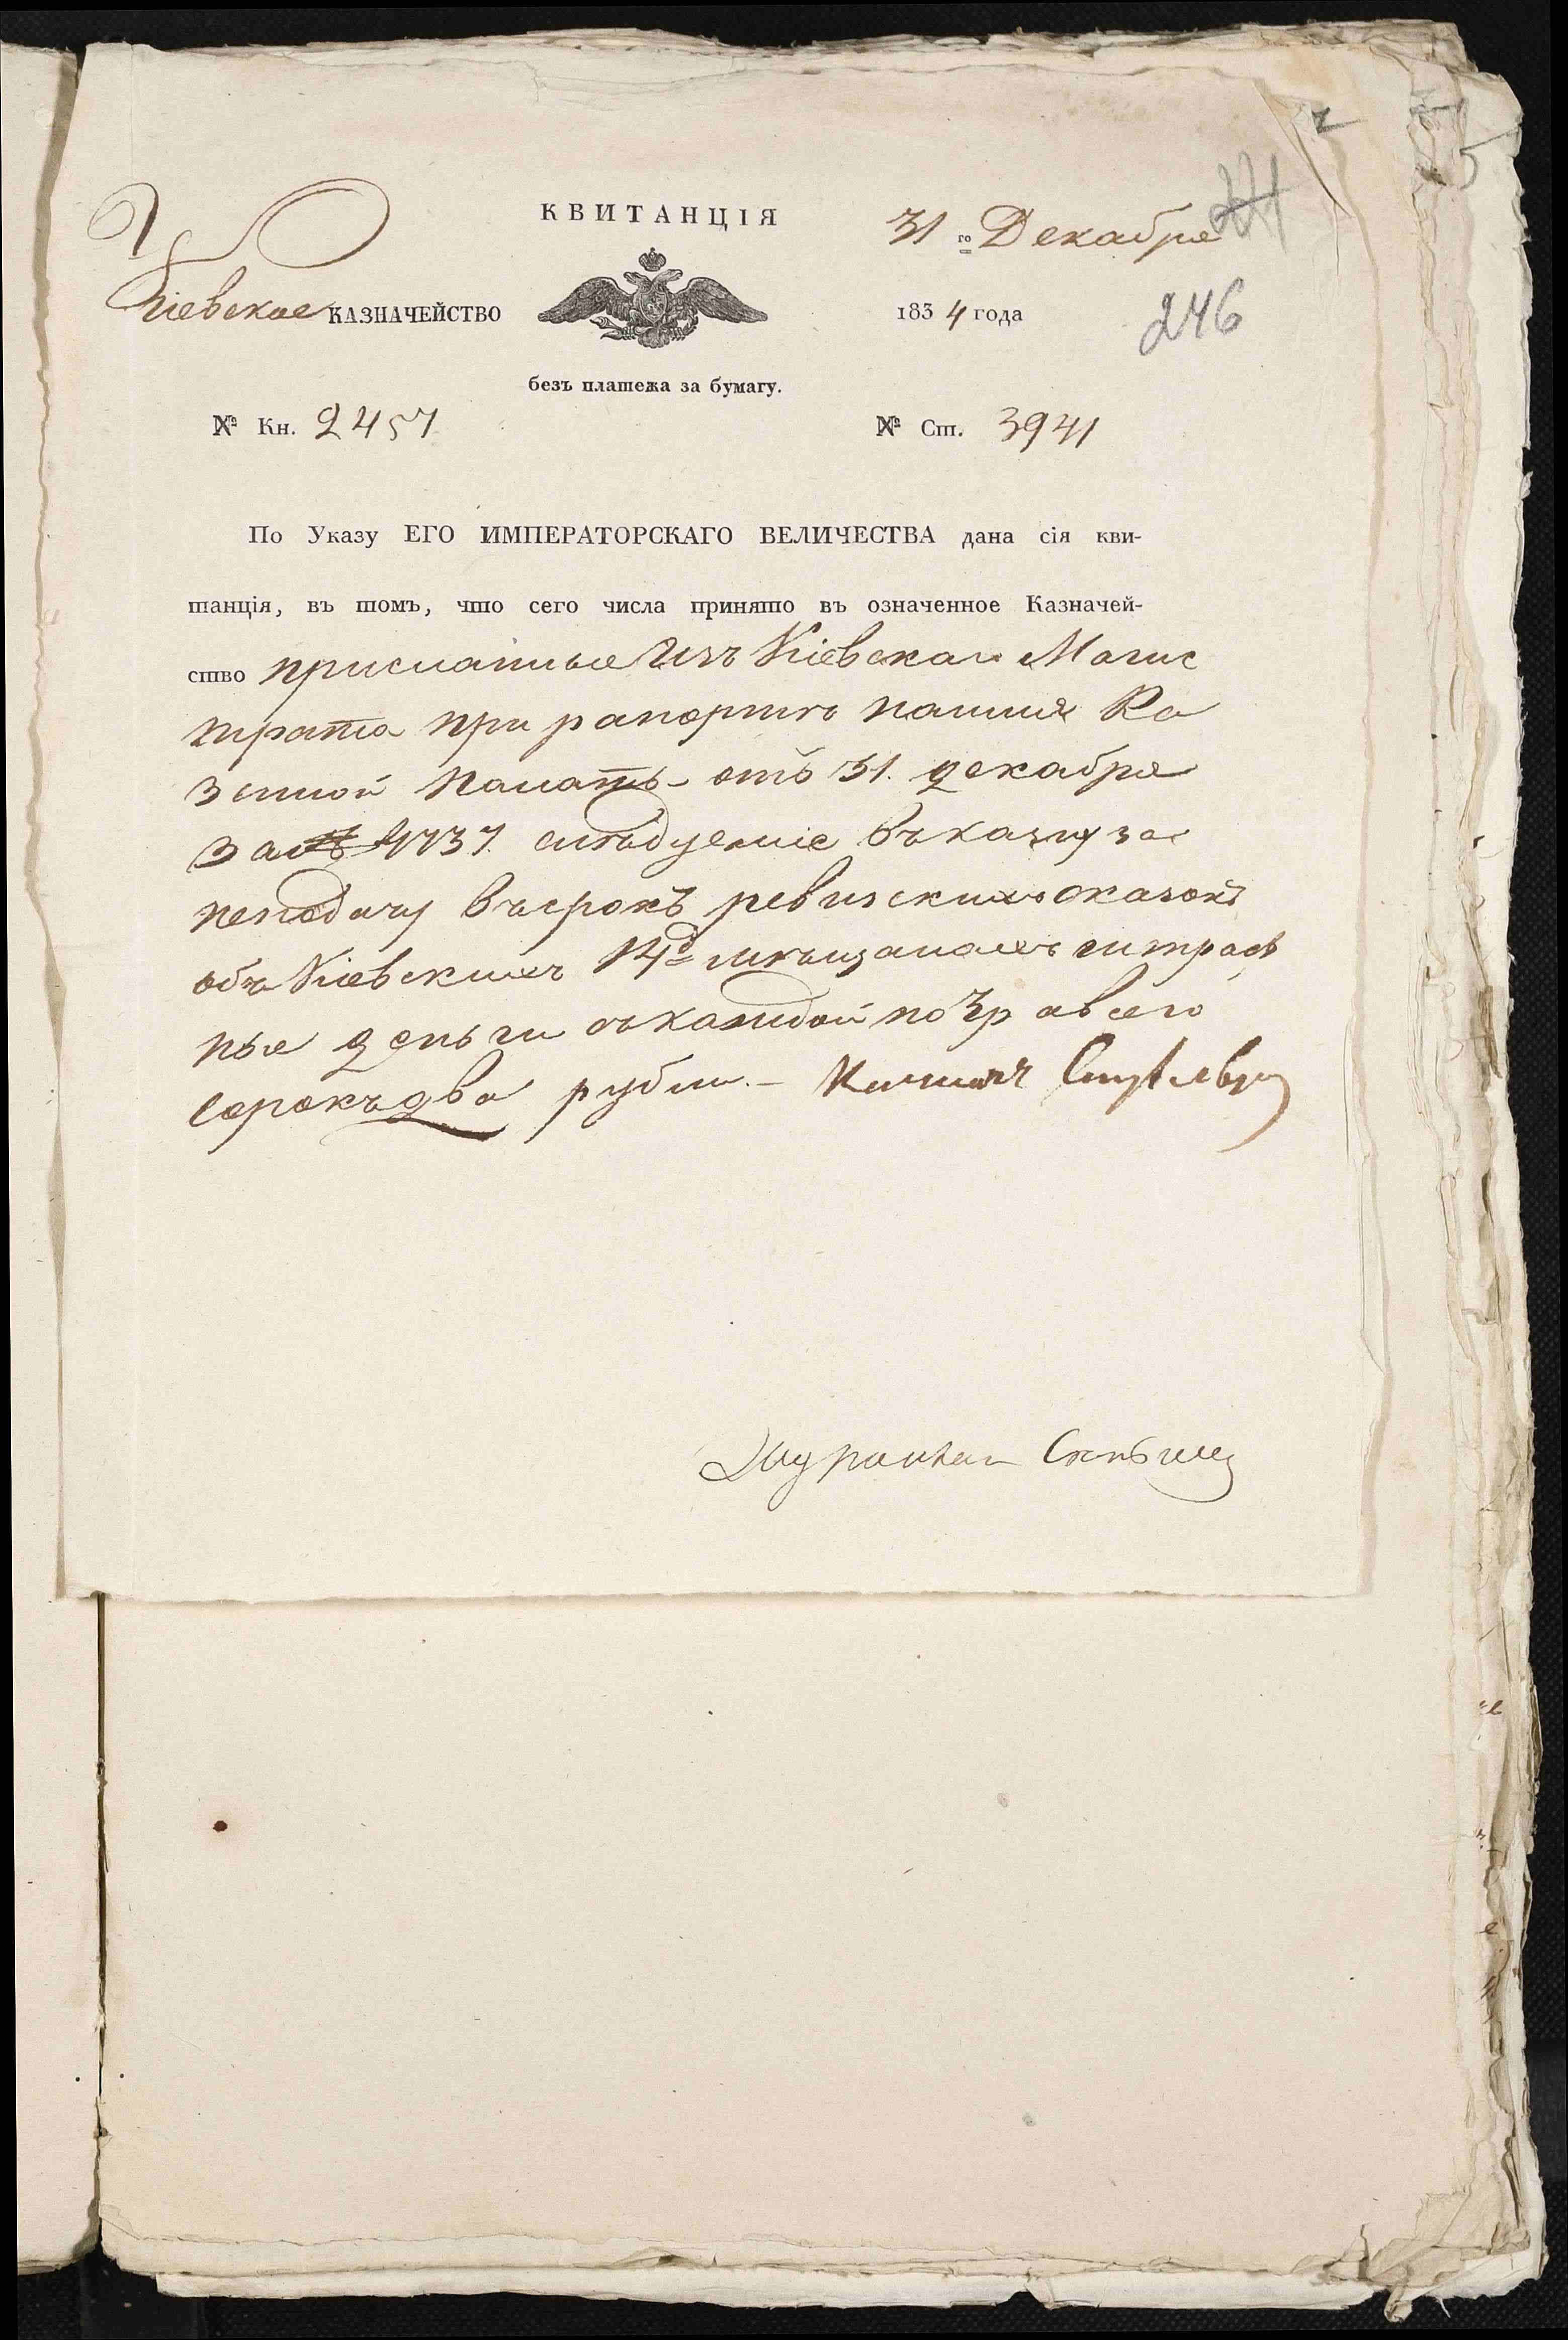 КВИТАНЦІЯ
31 го Декабря
Кіевское КАЗНАЧЕЙСТВО
1834 года
246
безъ платежа за бумагу.
№ Кн. 2457
№ Ст. 3941
По Указу ЕГО ИМПЕРАТОРСКАГО ВЕЛИЧЕСТВА дана сія кви-
танція, въ томъ, что сего числа принято въ означенное Казначей-
ство присланные изъ Кіевскаго Магис
трата при рапортѣ
зенной Палатѣ отъ 31. декабря
за № 4737 слѣдуемые въ казну за
неподачу въ срокъ ревизскихъ сказокъ
объ Кіевскихъ 14 мѣщанахъ штраф
ные деньги съ каждой по 3 р а всего
сорокъ два рубли.